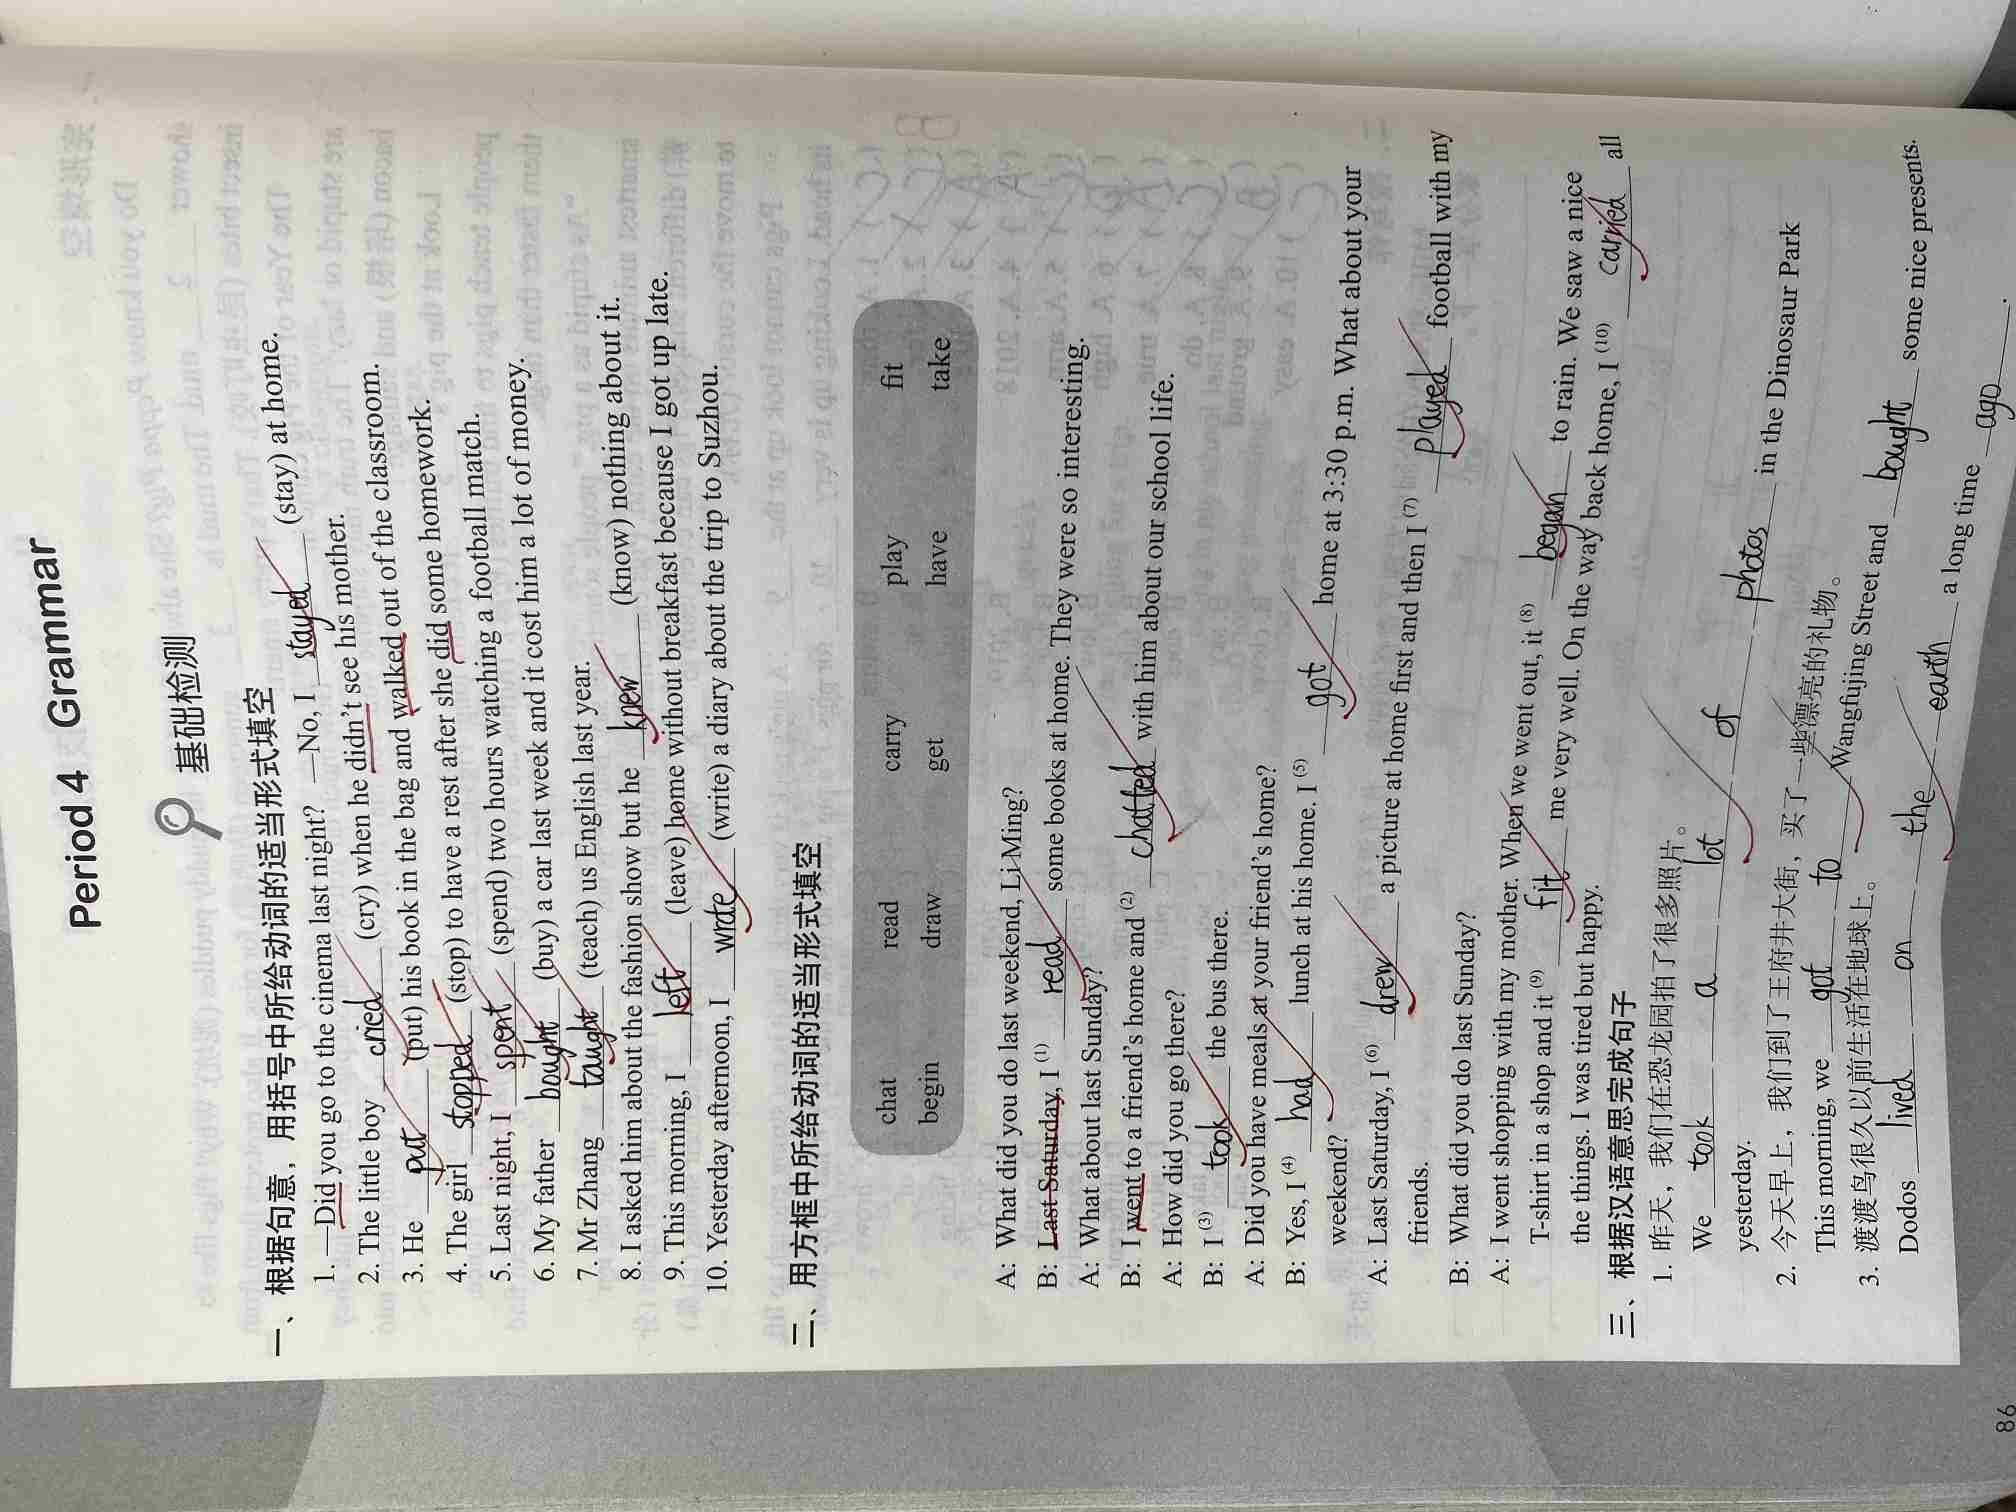 Period 4 Grammar
基础检测
一、根据句意，用括号中所给动词的适当形式填空
1. —Did you go to the cinema last night? —No, I stayed (stay) at home.
2. The little boy cried (cry) when he didn't see his mother.
3. He put (put) his book in the bag and walked out of the classroom.
4. The girl stopped (stop) to have a rest after she did some homework.
5. Last night, I spent (spend) two hours watching a football match.
6. My father bought (buy) a car last week and it cost him a lot of money.
7. Mr Zhang taught (teach) us English last year.
8. I asked him about the fashion show but he knew (know) nothing about it.
9. This morning, I left (leave) home without breakfast because I got up late.
10. Yesterday afternoon, I wrote (write) a diary about the trip to Suzhou.
二、用方框中所给动词的适当形式填空
chat read carry play fit
begin draw get have take
A: What did you do last weekend, Li Ming?
B: Last Saturday, I (1) read some books at home. They were so interesting.
A: What about last Sunday?
B: I went to a friend's home and (2) chatted with him about our school life.
A: How did you go there?
B: I (3) took the bus there.
A: Did you have meals at your friend's home?
B: Yes, I (4) had lunch at his home. I (5) got home at 3:30 p.m. What about your
weekend?
A: Last Saturday, I (6) drew a picture at home first and then I (7) played football with my
friends.
B: What did you do last Sunday?
A: I went shopping with my mother. When we went out, it (8) began to rain. We saw a nice
T-shirt in a shop and it (9) fit me very well. On the way back home, I (10) carried all
the things. I was tired but happy.
三、根据汉语意思完成句子
1. 昨天，我们在恐龙园拍了很多照片。
We took a lot of photos in the Dinosaur Park
yesterday.
2. 今天早上，我们到了王府井大街，买了一些漂亮的礼物。
This morning, we got to Wangfujing Street and bought some nice presents.
3. 渡渡鸟很久以前生活在地球上。
Dodos lived on the earth a long time ago.
86